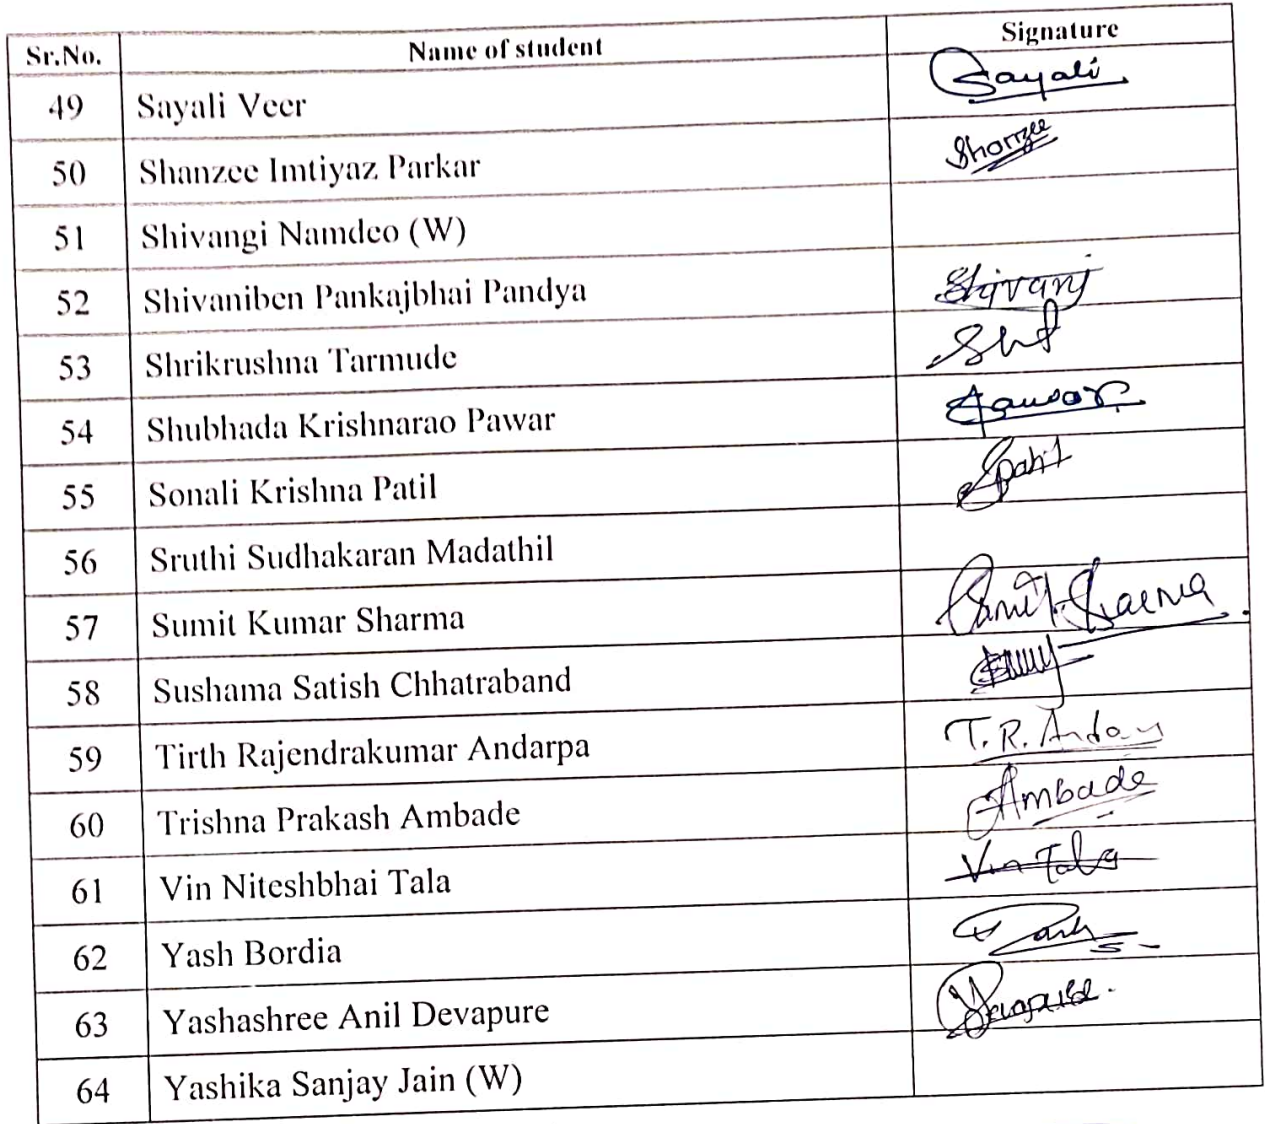 Sr.No. Name of student Signature
49 Sayali Veer Sayali
50 Shanzee Imtiyaz Parkar Shanzee
51 Shivangi Namdeo (W)
52 Shivaniben Pankajbhai Pandya Shivani
53 Shrikrushna Tarmude
54 Shubhada Krishnarao Pawar
55 Sonali Krishna Patil Spatil
56 Sruthi Sudhakaran Madathil
57 Sumit Kumar Sharma Sumit Sharma
58 Sushama Satish Chhatraband
59 Tirth Rajendrakumar Andarpa T.R.
60 Trishna Prakash Ambade Ambade
61 Vin Niteshbhai Tala Vin Tala
62 Yash Bordia
63 Yashashree Anil Devapure
64 Yashika Sanjay Jain (W)